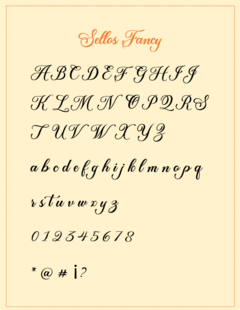 Sellos Fancy
ABCDEFGHIJ
KLMNOPQRS
TUVWXYZ
abcdefghijklmnopq
rstuvwxyz
012345678
*@#¡?